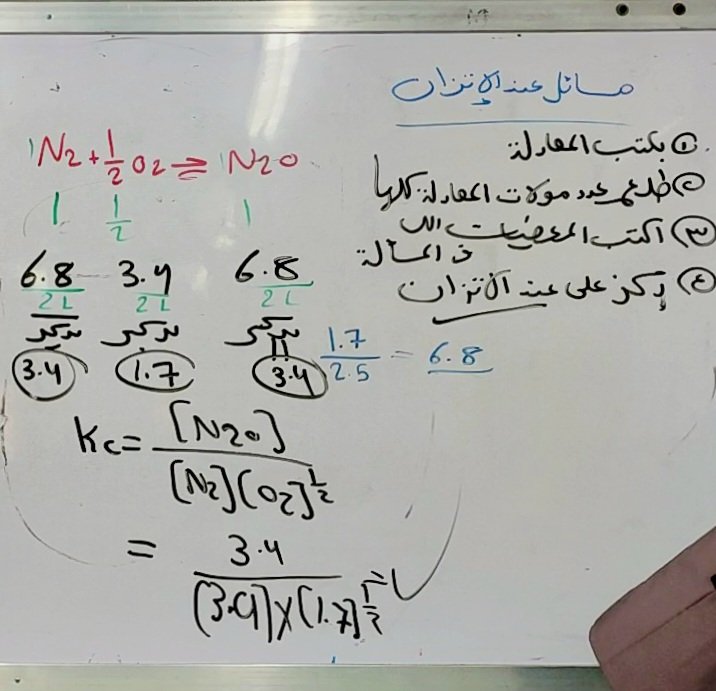 مسائل عند الإتزان
① بكتب المعادلة
② طلع عدد مولات المعادلة كلها
③ اكتب المعطيات اللي
في المسألة
④ ركز على عند الاتزان
1N2 + 1/2 O2 ⇌ 1N2O
1 1/2 1
6.8/2L 3.4/2L 6.8/2L
تركيز تركيز تركيز
3.4 1.7 3.4
1.7/2.5 = 6.8
Kc = [N2O] / [N2][O2]^1/2
= 3.4 / (3.4) x (1.7)^1/2 =